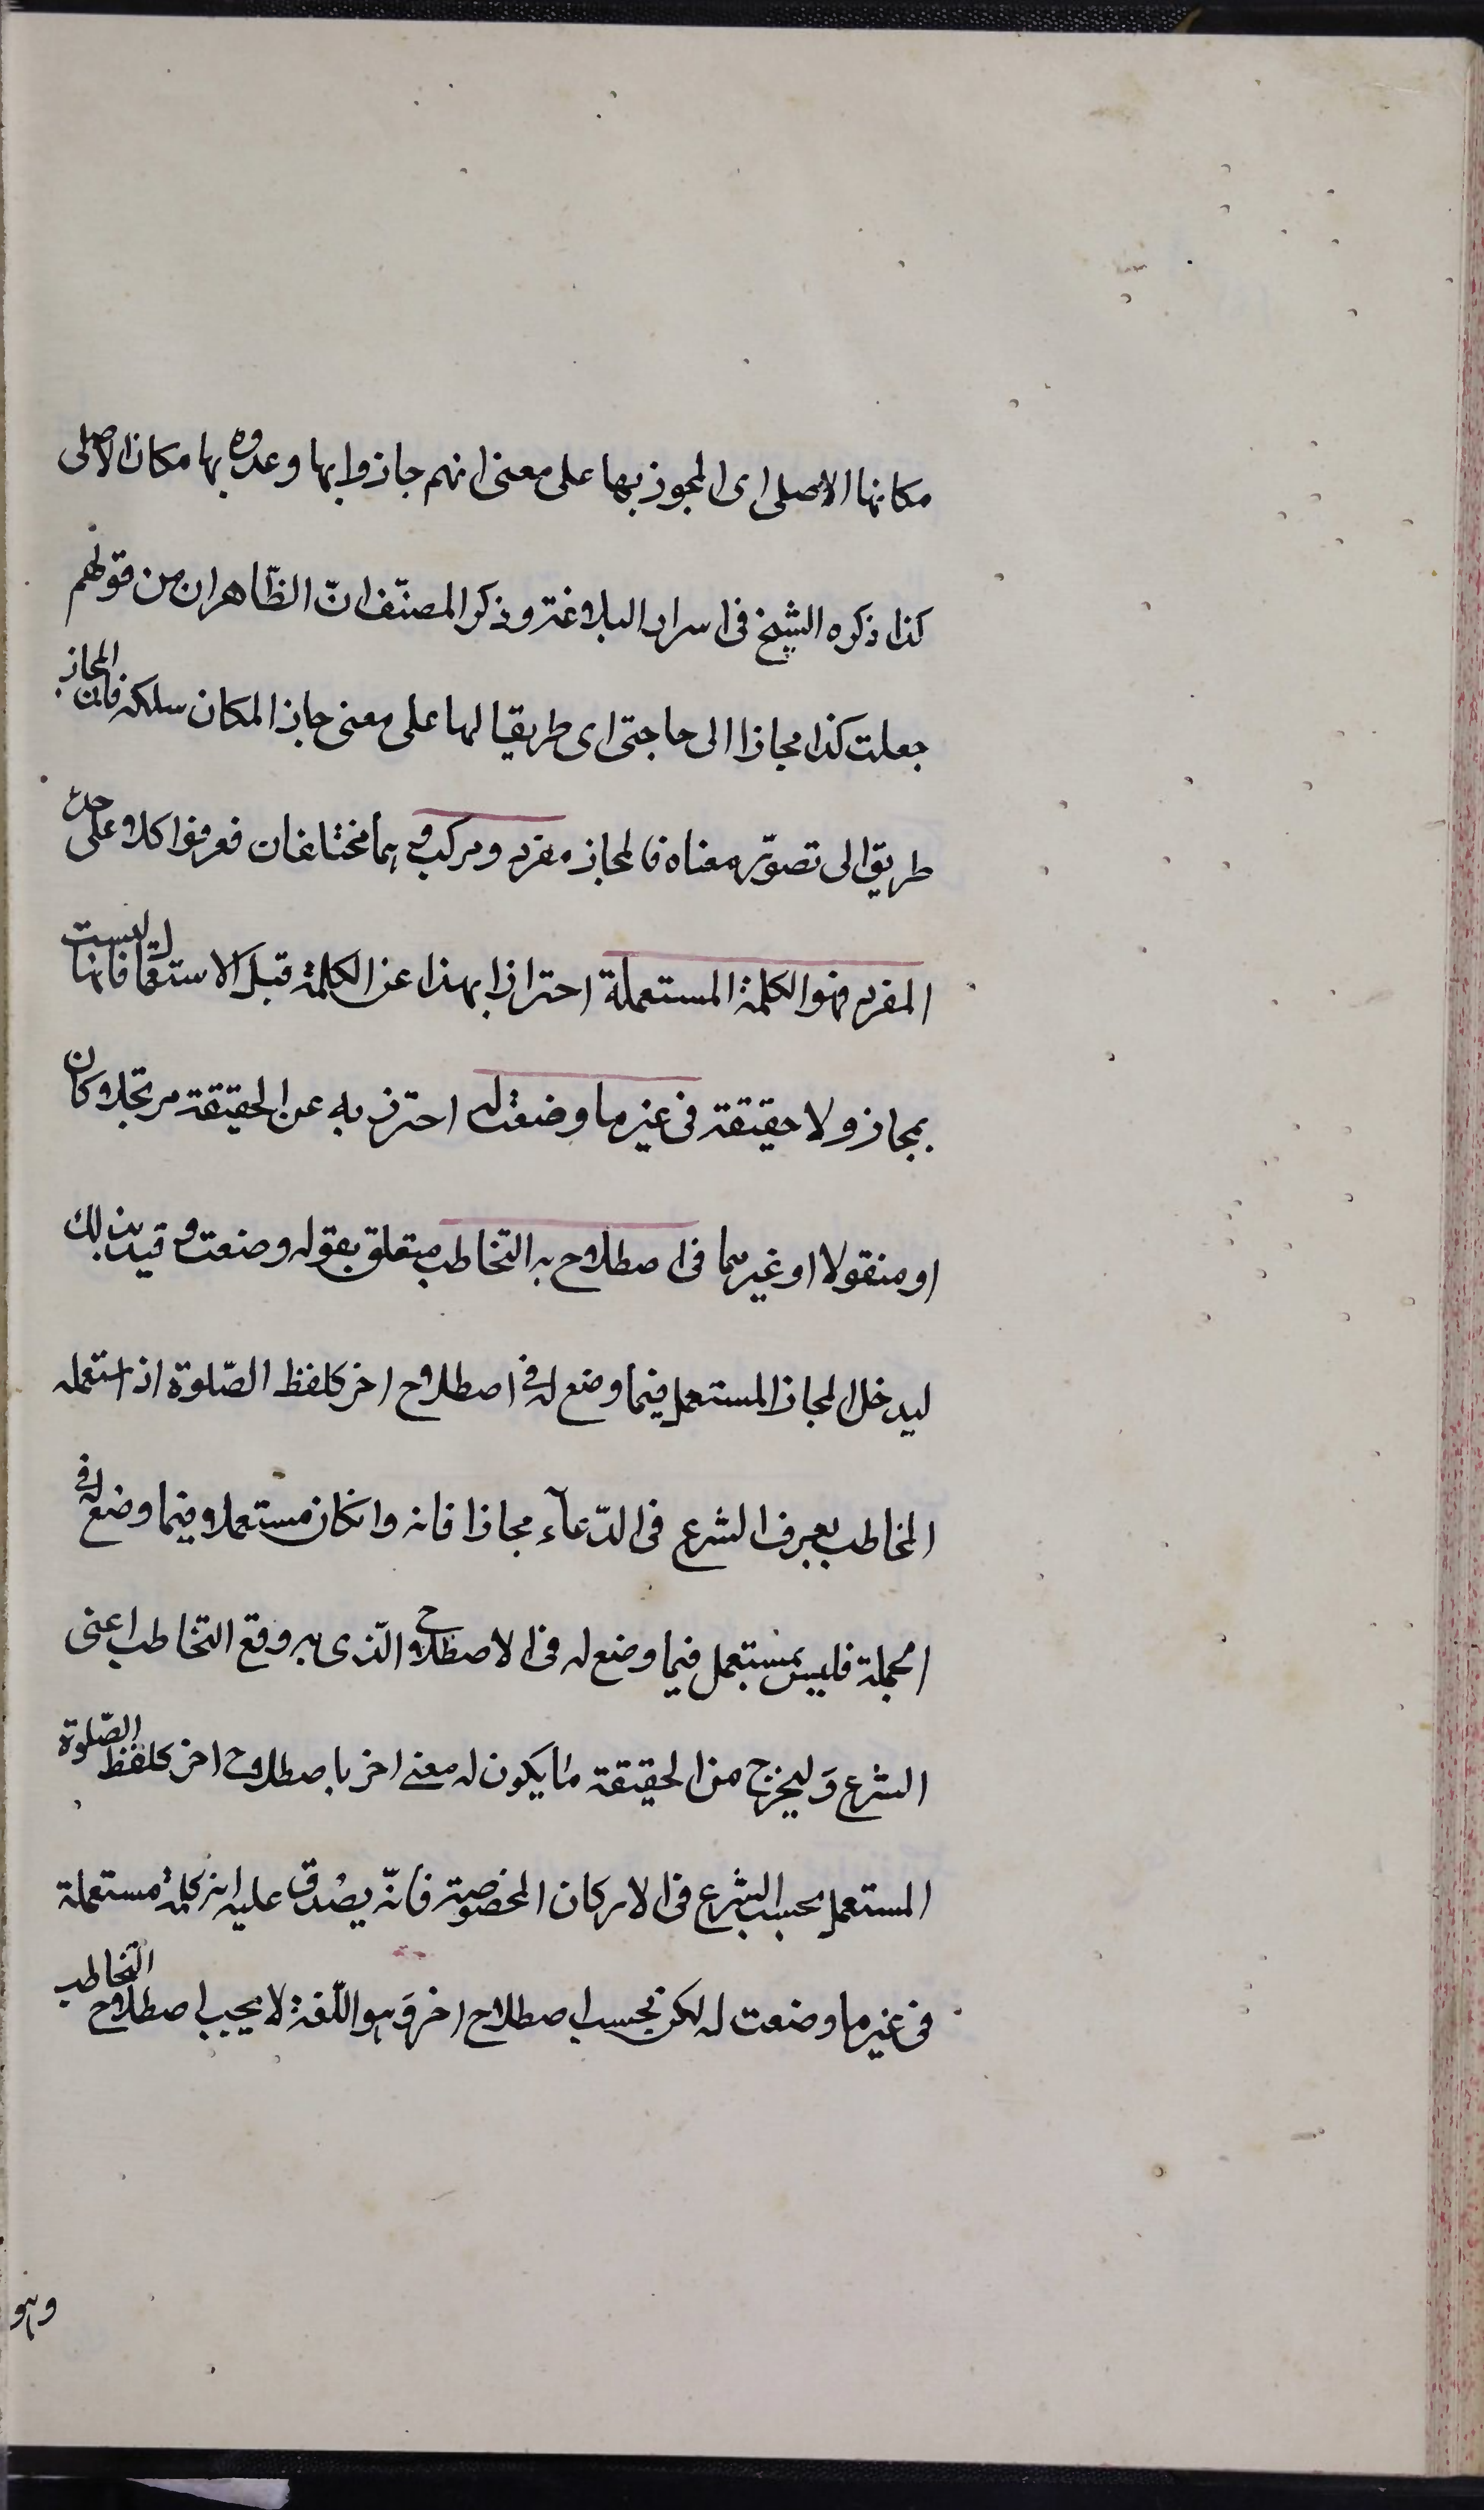 مكانها الاصلى اى المجوز بها على معنى انهم جازوا بها وعدوه بها مكان الاصلى
كذا ذكره الشيخ فى اسرار البلاغة وذكر المصنّف انّ الظّاهر ان من قولهم
جعلت كذا مجازا الى حاجتى اى طريقا لها على معنى جاز المكان سلكه فان المجاز
طريق الى تصوّر معناه فالمجاز مفرد ومركب وهما مختلفان فعرفوا كلا على حدة
المفرد فهو الكلمة المستعملة احترازا بهذا عن الكلمة قبل الاستعمال فانها ليست
بمجاز ولا حقيقة فى غير ما وضعت له احترز به عن الحقيقة مرتجلا كان
او منقولا او غيرهما فى اصطلاح به التخاطب متعلق بقوله وضعت وقيد بذلك
ليدخل المجاز المستعمل فيما وضع له فى اصطلاح اخر كلفظ الصّلوة اذا استعمله
المخاطب بعرف الشرع فى الدّعآء مجازا فانه وان كان مستعملا فيما وضع له فى
الجملة فليس بمستعمل فيما وضع له فى الاصطلاح الّذى به وقع التخاطب اعنى
الشرع وَليخرج من الحقيقة ما يكون له معنى اخر باصطلاح اخر كلفظ الصّلوة
المستعمل بحسب الشرع فى الاركان المخصوصة فانّه يصدق عليه انه كلمة مستعملة
فى غير ما وضعت له لكن بحسب اصطلاح اخر وَهو اللّغة لا بحسب اصطلاح التخاطب
وهو